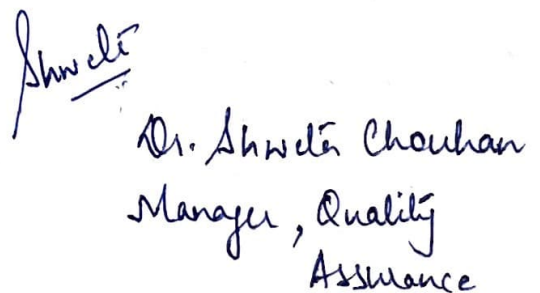 Shweta
Dr. Shweta Chouhan
Manager, Quality
Assurance